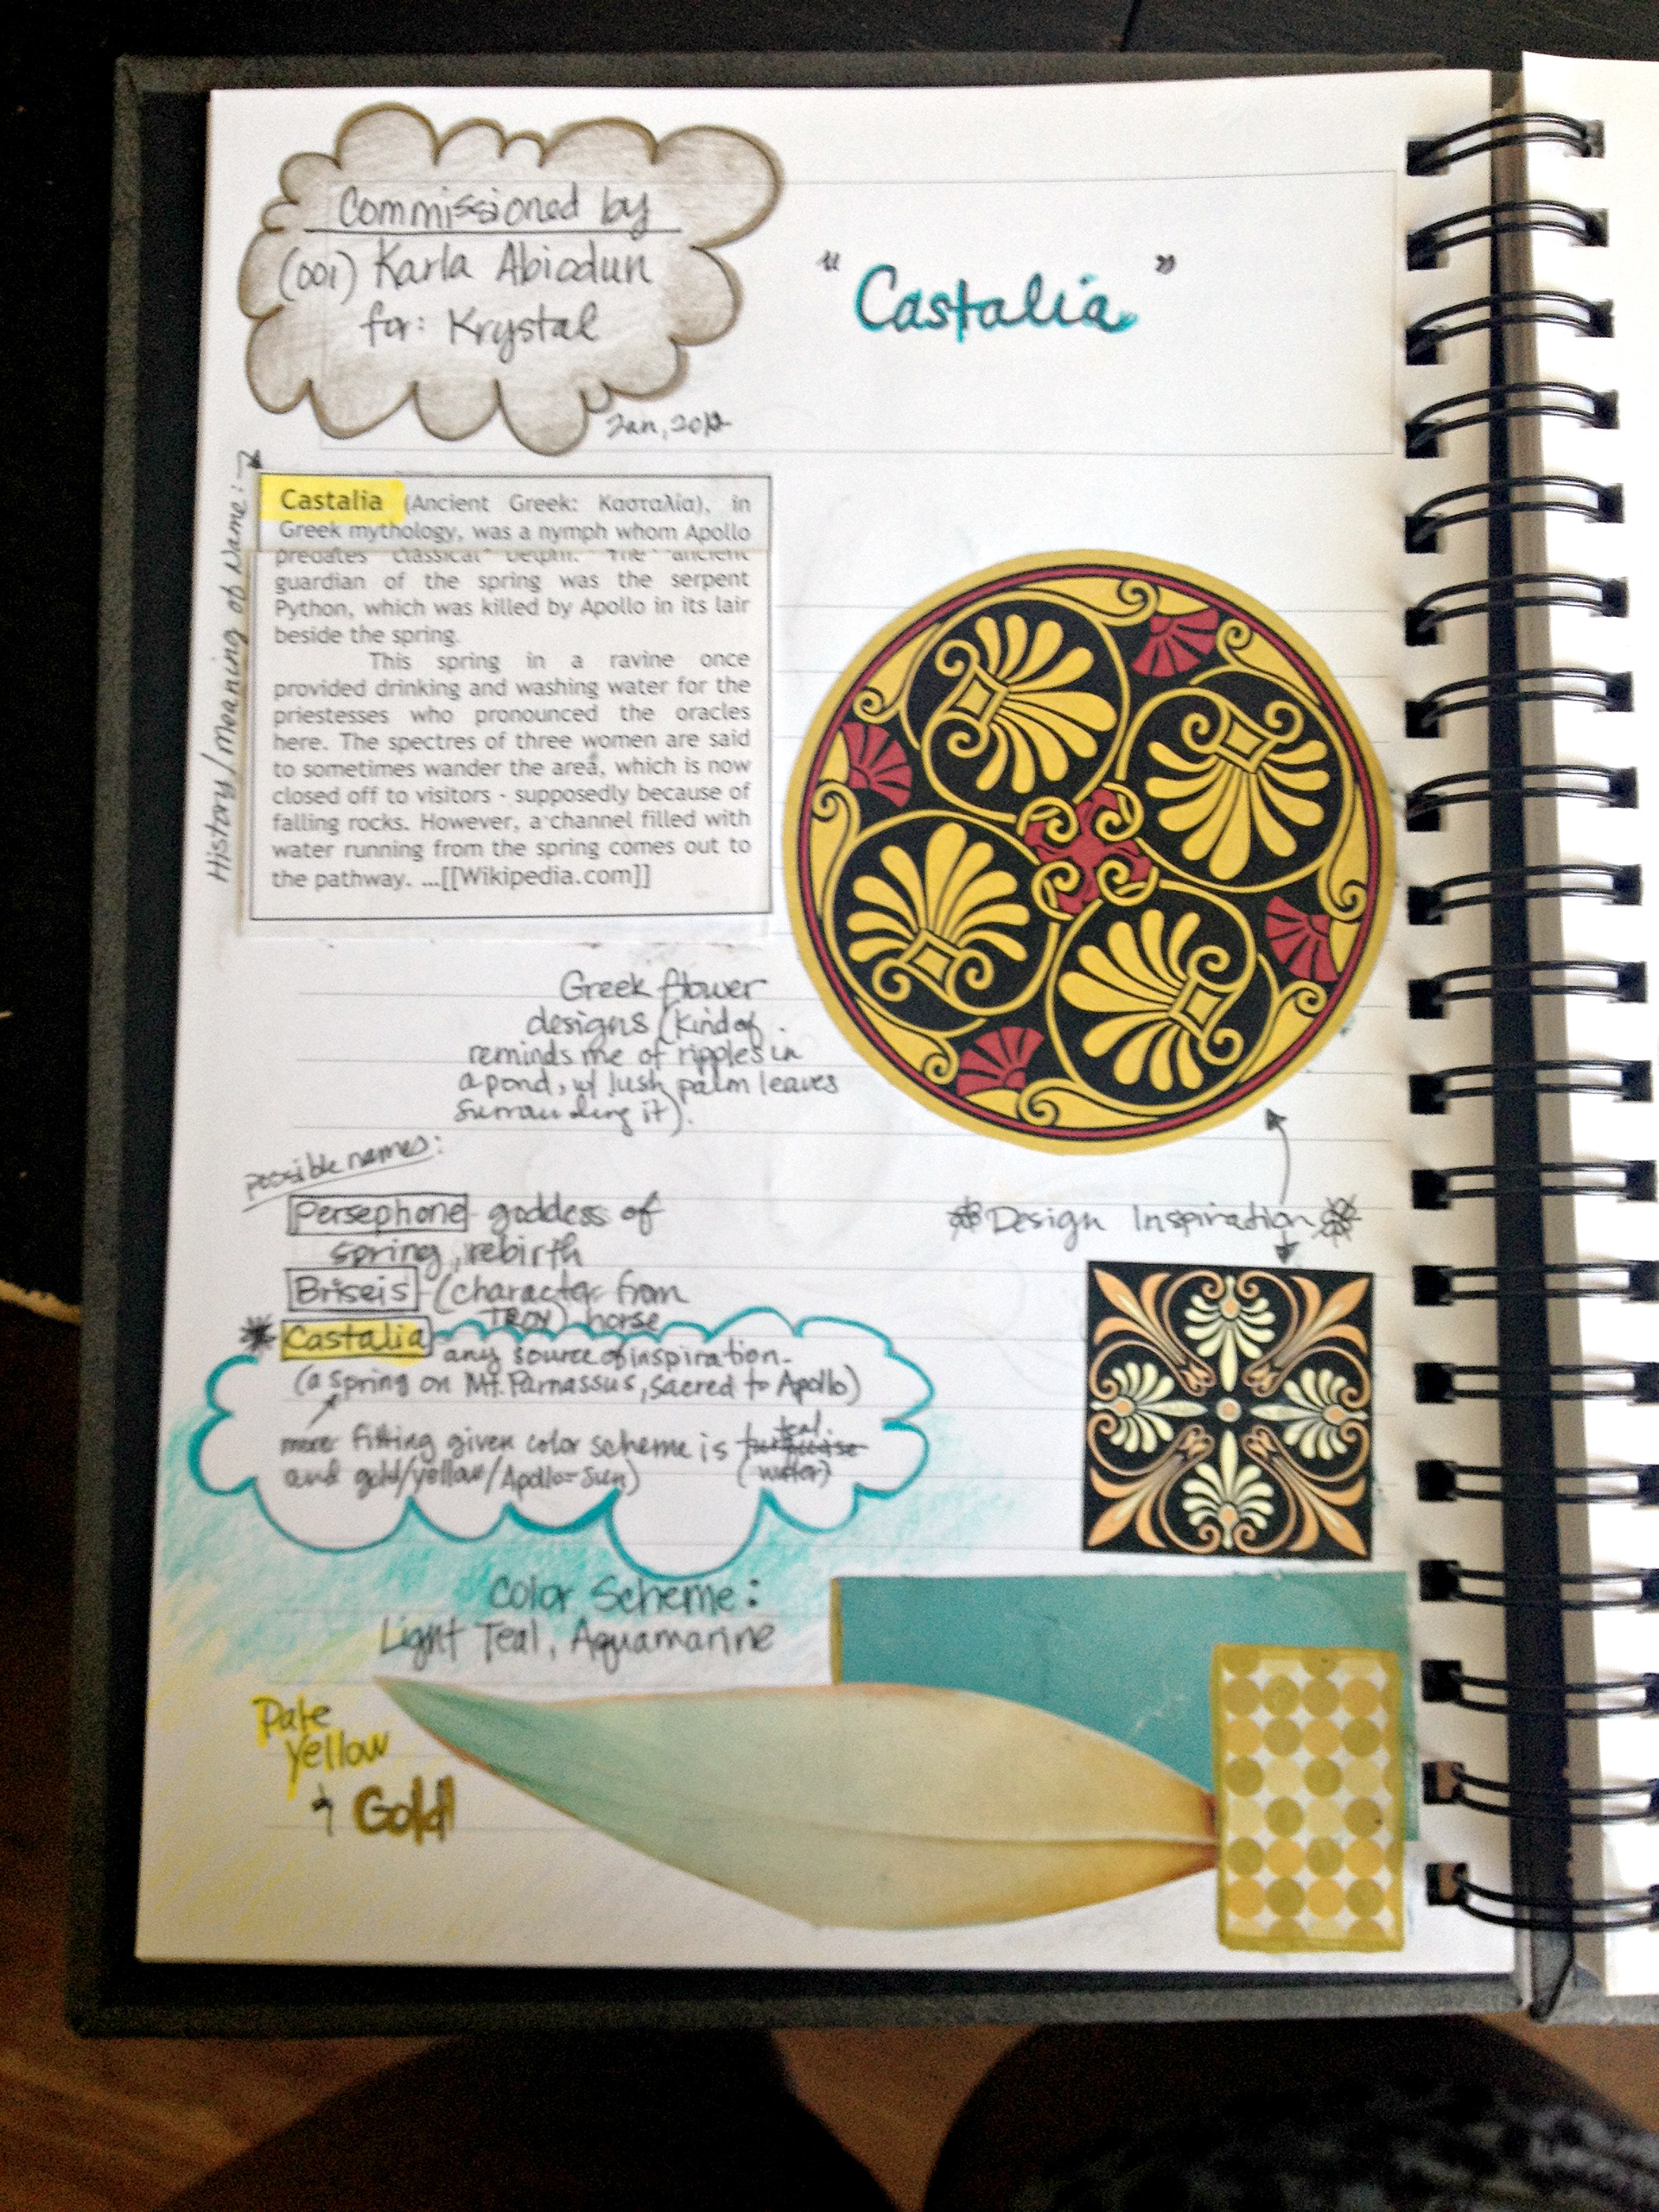 Commissioned by
(001) Karla Abiodun
for: Krystal
Jan, 2012
"Castalia"
History/Meaning of Name:
Castalia (Ancient Greek: Κασταλία), in
Greek mythology, was a nymph whom Apollo
predates classical Delphi. The ancient
guardian of the spring was the serpent
Python, which was killed by Apollo in its lair
beside the spring.
This spring in a ravine once
provided drinking and washing water for the
priestesses who pronounced the oracles
here. The spectres of three women are said
to sometimes wander the area, which is now
closed off to visitors - supposedly because of
falling rocks. However, a channel filled with
water running from the spring comes out to
the pathway. ...[[Wikipedia.com]]
Greek flower
designs (kind of
reminds me of ripples in
a pond, w/ lush palm leaves
surrounding it).
possible names:
Persephone - goddess of
spring, rebirth
Briseis - (character from
TROY) horse
Castalia - any source of inspiration.
(a spring on Mt. Parnassus, sacred to Apollo)
more fitting given color scheme is turquoise teal.
and gold/yellow/Apollo=Sun) (water)
Design Inspiration
Color Scheme:
Light Teal, Aquamarine
Pale
Yellow
& Gold